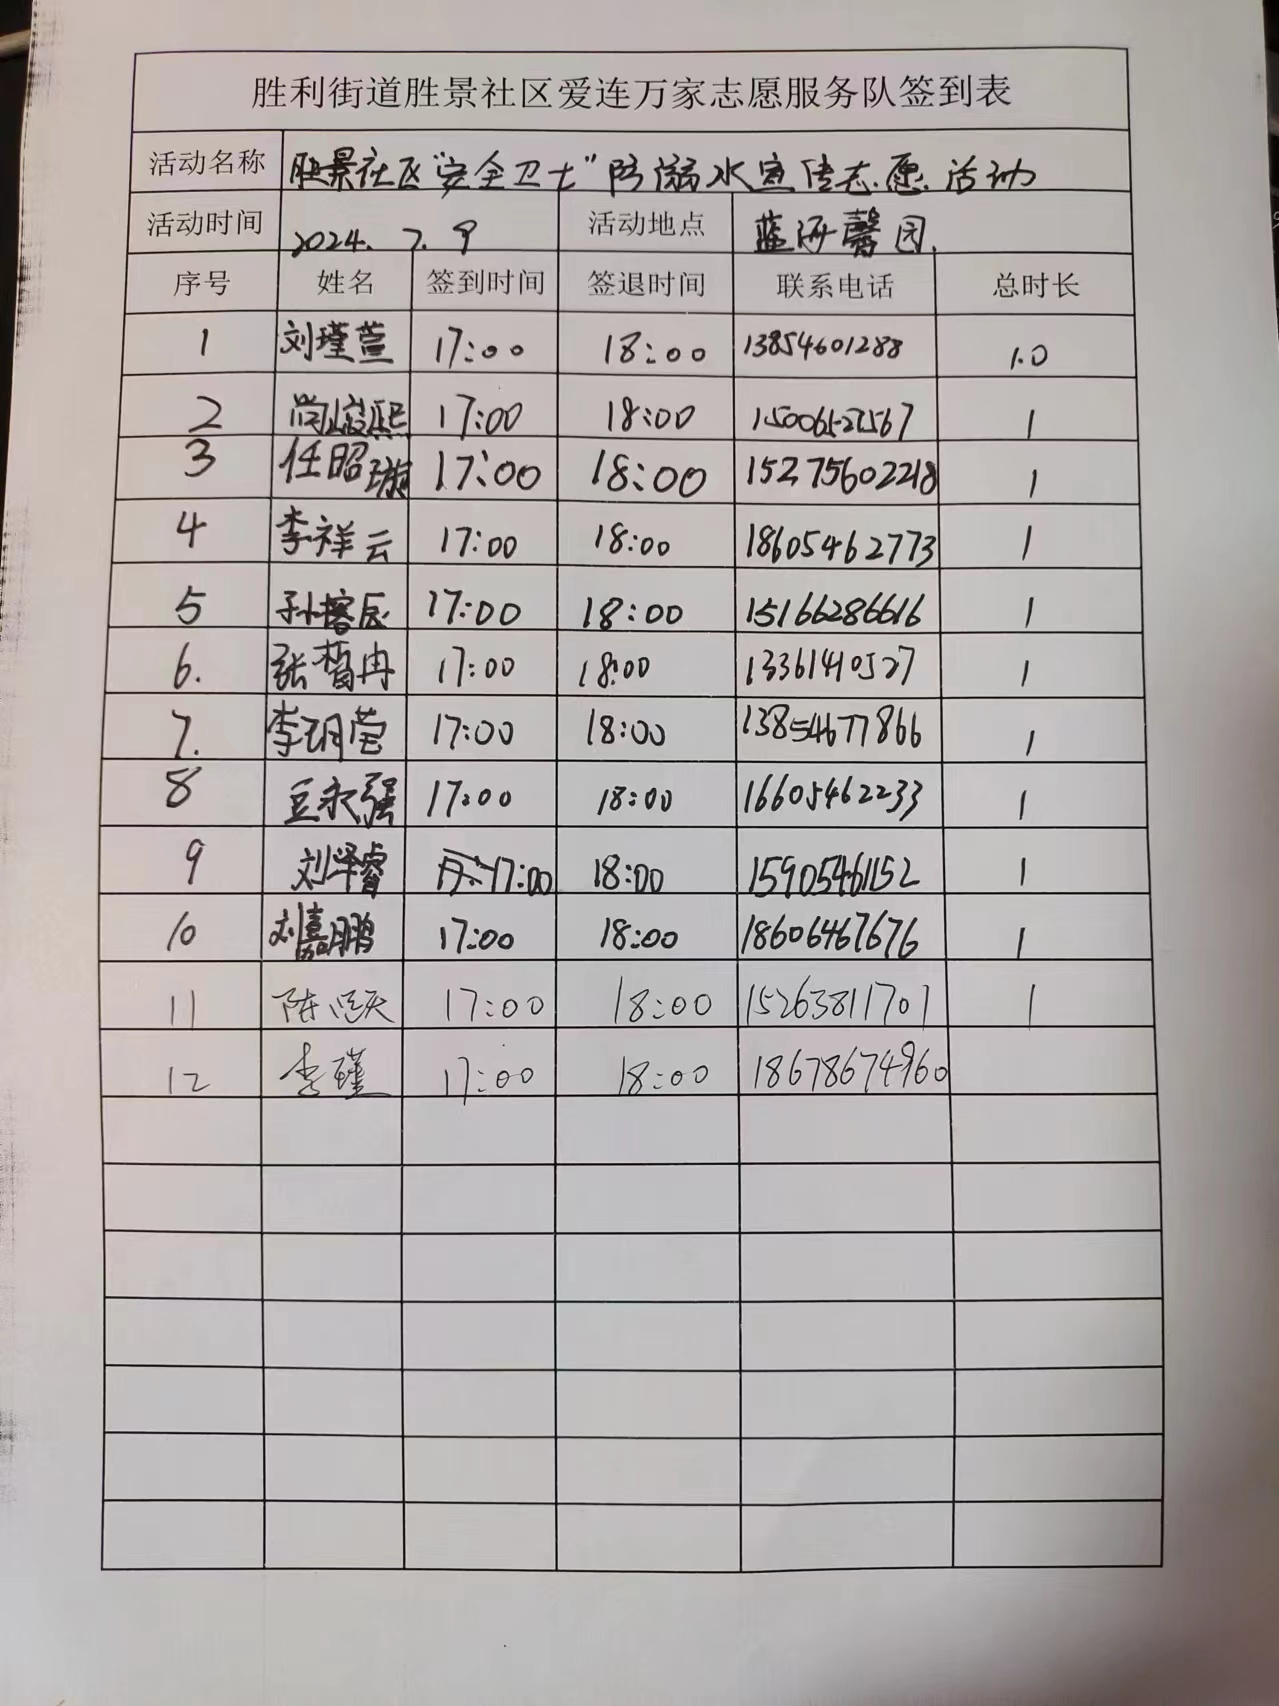 胜利街道胜景社区爱连万家志愿服务队签到表
活动名称 胜景社区"安全卫士"防溺水宣传志愿活动
活动时间 2024.7.9 活动地点 蓝海馨园.
序号 姓名 签到时间 签退时间 联系电话 总时长
1 刘瑾萱 17:00 18:00 13854601288 1.0
2 尚峻熙 17:00 18:00 1
3 任昭璇 17:00 18:00 15275602218 1
4 李祥云 17:00 18:00 18605462773 1
5 孙榕辰 17:00 18:00 15166286616 1
6. 张 冉 17:00 18:00 13361410527 1
7. 李玥莹 17:00 18:00 13854677866 1
8 豆永强 17:00 18:00 16605462233 1
9 刘泽睿 17:00 18:00 15905461152 1
10 刘嘉鹏 17:00 18:00 18606467676 1
11 陈 天 17:00 18:00 15263811701 1
12 李瑾 17:00 18:00 18678674960